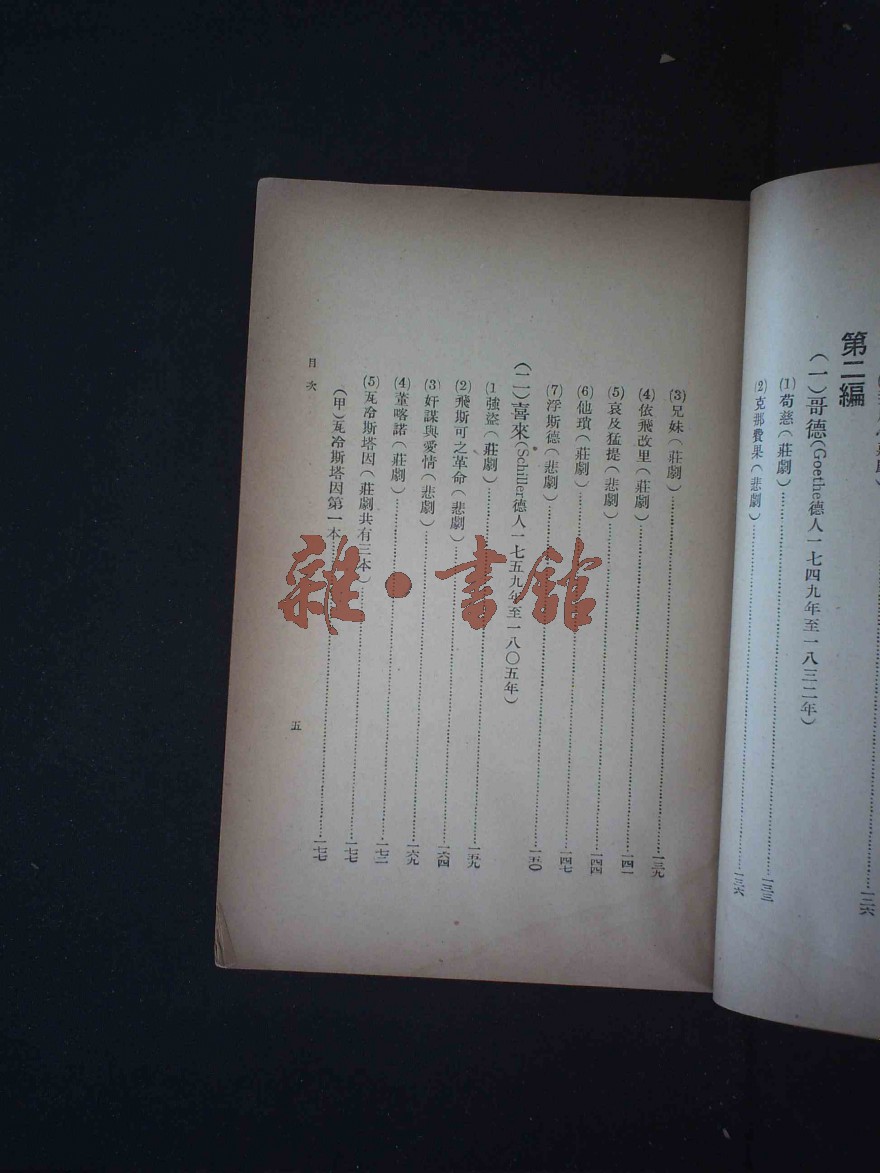 一三六
第二編
(一)哥德(Goethe德人一七四九年至一八三二年)
(1)荀慈(莊劇)……一三三
(2)克那費果(悲劇)……一三六
(3)兄妹(莊劇)……一三九
(4)依飛改里(莊劇)……一四一
(5)哀及猛提(悲劇)……一四四
(6)他瓆(莊劇)……一四七
(7)浮斯德(悲劇)……一五〇
(二)喜來(Schiller德人一七五九年至一八〇五年)
(1)強盜(莊劇)……一五九
(2)飛斯可之革命(悲劇)……一六四
(3)奸謀與愛情(悲劇)……一六九
(4)董喀諾(莊劇)……一七二
(5)瓦冷斯塔因(莊劇共有三本)……一七七
(甲)瓦冷斯塔因第一本……一七七
目次
五
雜·書館